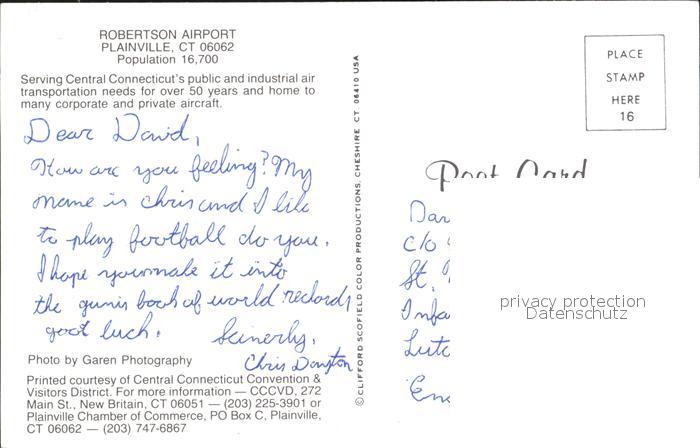 ROBERTSON AIRPORT
PLAINVILLE, CT 06062
Population 16,700
Serving Central Connecticut's public and industrial air
transportation needs for over 50 years and home to
many corporate and private aircraft.
Dear David,
How are you feeling? My
name is chris and I like
to play football do you.
I hope you make it into
the gunis book of world rechords
goot luch. Scinerly,
Chris Dayton
Photo by Garen Photography
Printed courtesy of Central Connecticut Convention &
Visitors District. For more information — CCCVD, 272
Main St., New Britain, CT 06051 — (203) 225-3901 or
Plainville Chamber of Commerce, PO Box C, Plainville,
CT 06062 — (203) 747-6867
© CLIFFORD SCOFIELD COLOR PRODUCTIONS, CHESHIRE CT 06410 USA
PLACE
STAMP
HERE
16
Post Card
Dav
c/o
St.
Infa
Lutc
En
privacy protection
Datenschutz